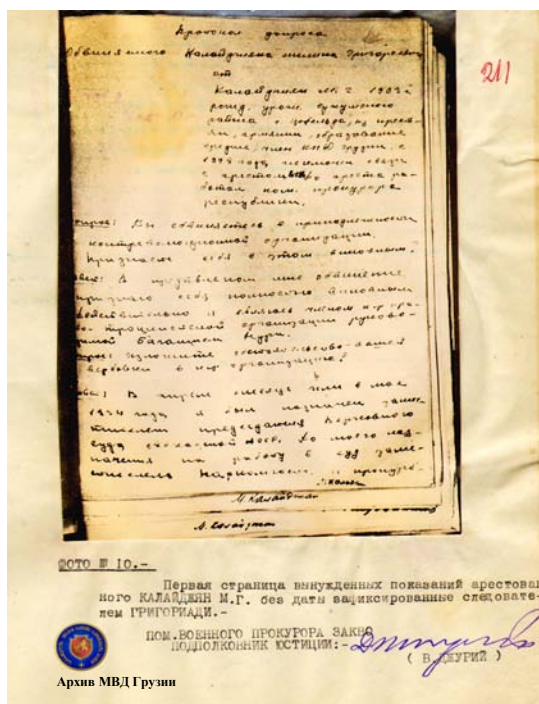 Протокол допроса
Обвиняемого Калайджяна Григоревича
от
Калайджян М.Г. 1903 г.
рожд. урож. Сухумского
района с. из кресть-
ян, армянин, образование
среднее, член КП/б/ Грузии с
1928 года, исключен в связи
с арестом, до ареста ра-
ботал пом. прокурора
республики.
Вы обвиняетесь в принадлежности
к контрреволюционной организации.
Признаете себя в этом виновным?
В предъявленном мне обвинение
признаю себя полностью виновным
действительно я являлся членом к-р пра-
во-троцкистской организации руково-
димой
вербовки в к-р организацию?
В апреле месяце или в мае
1934 года я был назначен заме-
стителем председателя Верховного
суда Абхазской АССР. До моего наз-
начения на работу в суд заме-
ститель Наркомюста и прокуро-
М. Калайджян
211
ФОТО № 10.-
Первая страница вынужденных показаний арестован
ного КАЛАЙДЖЯН М.Г. без даты зафиксированные следовате-
лем ГРИГОРИАДИ.-
ПОМ.ВОЕННОГО ПРОКУРОРА ЗАКВО
ПОДПОЛКОВНИК ЮСТИЦИИ:-
( В.ДЖУРИЙ )
Архив МВД Грузии